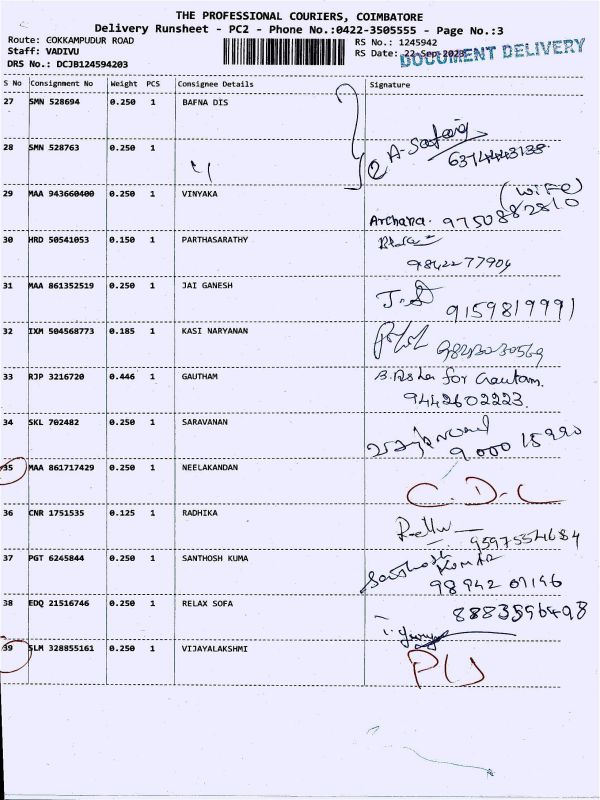 THE PROFESSIONAL COURIERS, COIMBATORE
Delivery Runsheet - PC2 - Phone No.:0422-3505555 - Page No.:3
Route: GOKKAMPUDUR ROAD
Staff: VADIVU
DRS No.: DCJB124594203
RS No.: 1245942
RS Date: 22-Sep-2023
DOCUMENT DELIVERY
S No Consignment No Weight PCS Consignee Details Signature
27 SMN 528694 0.250 1 BAFNA DIS
28 SMN 528763 0.250 1
29 MAA 943660400 0.250 1 VINYAKA (Wife)
Archana. 9750882810
30 HRD 50541053 0.150 1 PARTHASARATHY
9842277904
31 MAA 861352519 0.250 1 JAI GANESH
9159819991
32 IXM 504568773 0.185 1 KASI NARYANAN
33 RJP 3216720 0.446 1 GAUTHAM for Gautam.
9442602223.
34 SKL 702482 0.250 1 SARAVANAN
35 MAA 861717429 0.250 1 NEELAKANDAN
C.D-L
36 CNR 1751535 0.125 1 RADHIKA
37 PGT 6245844 0.250 1 SANTHOSH KUMA Santhosh Kumar
38 EDQ 21516746 0.250 1 RELAX SOFA
39 SLM 328855161 0.250 1 VIJAYALAKSHMI